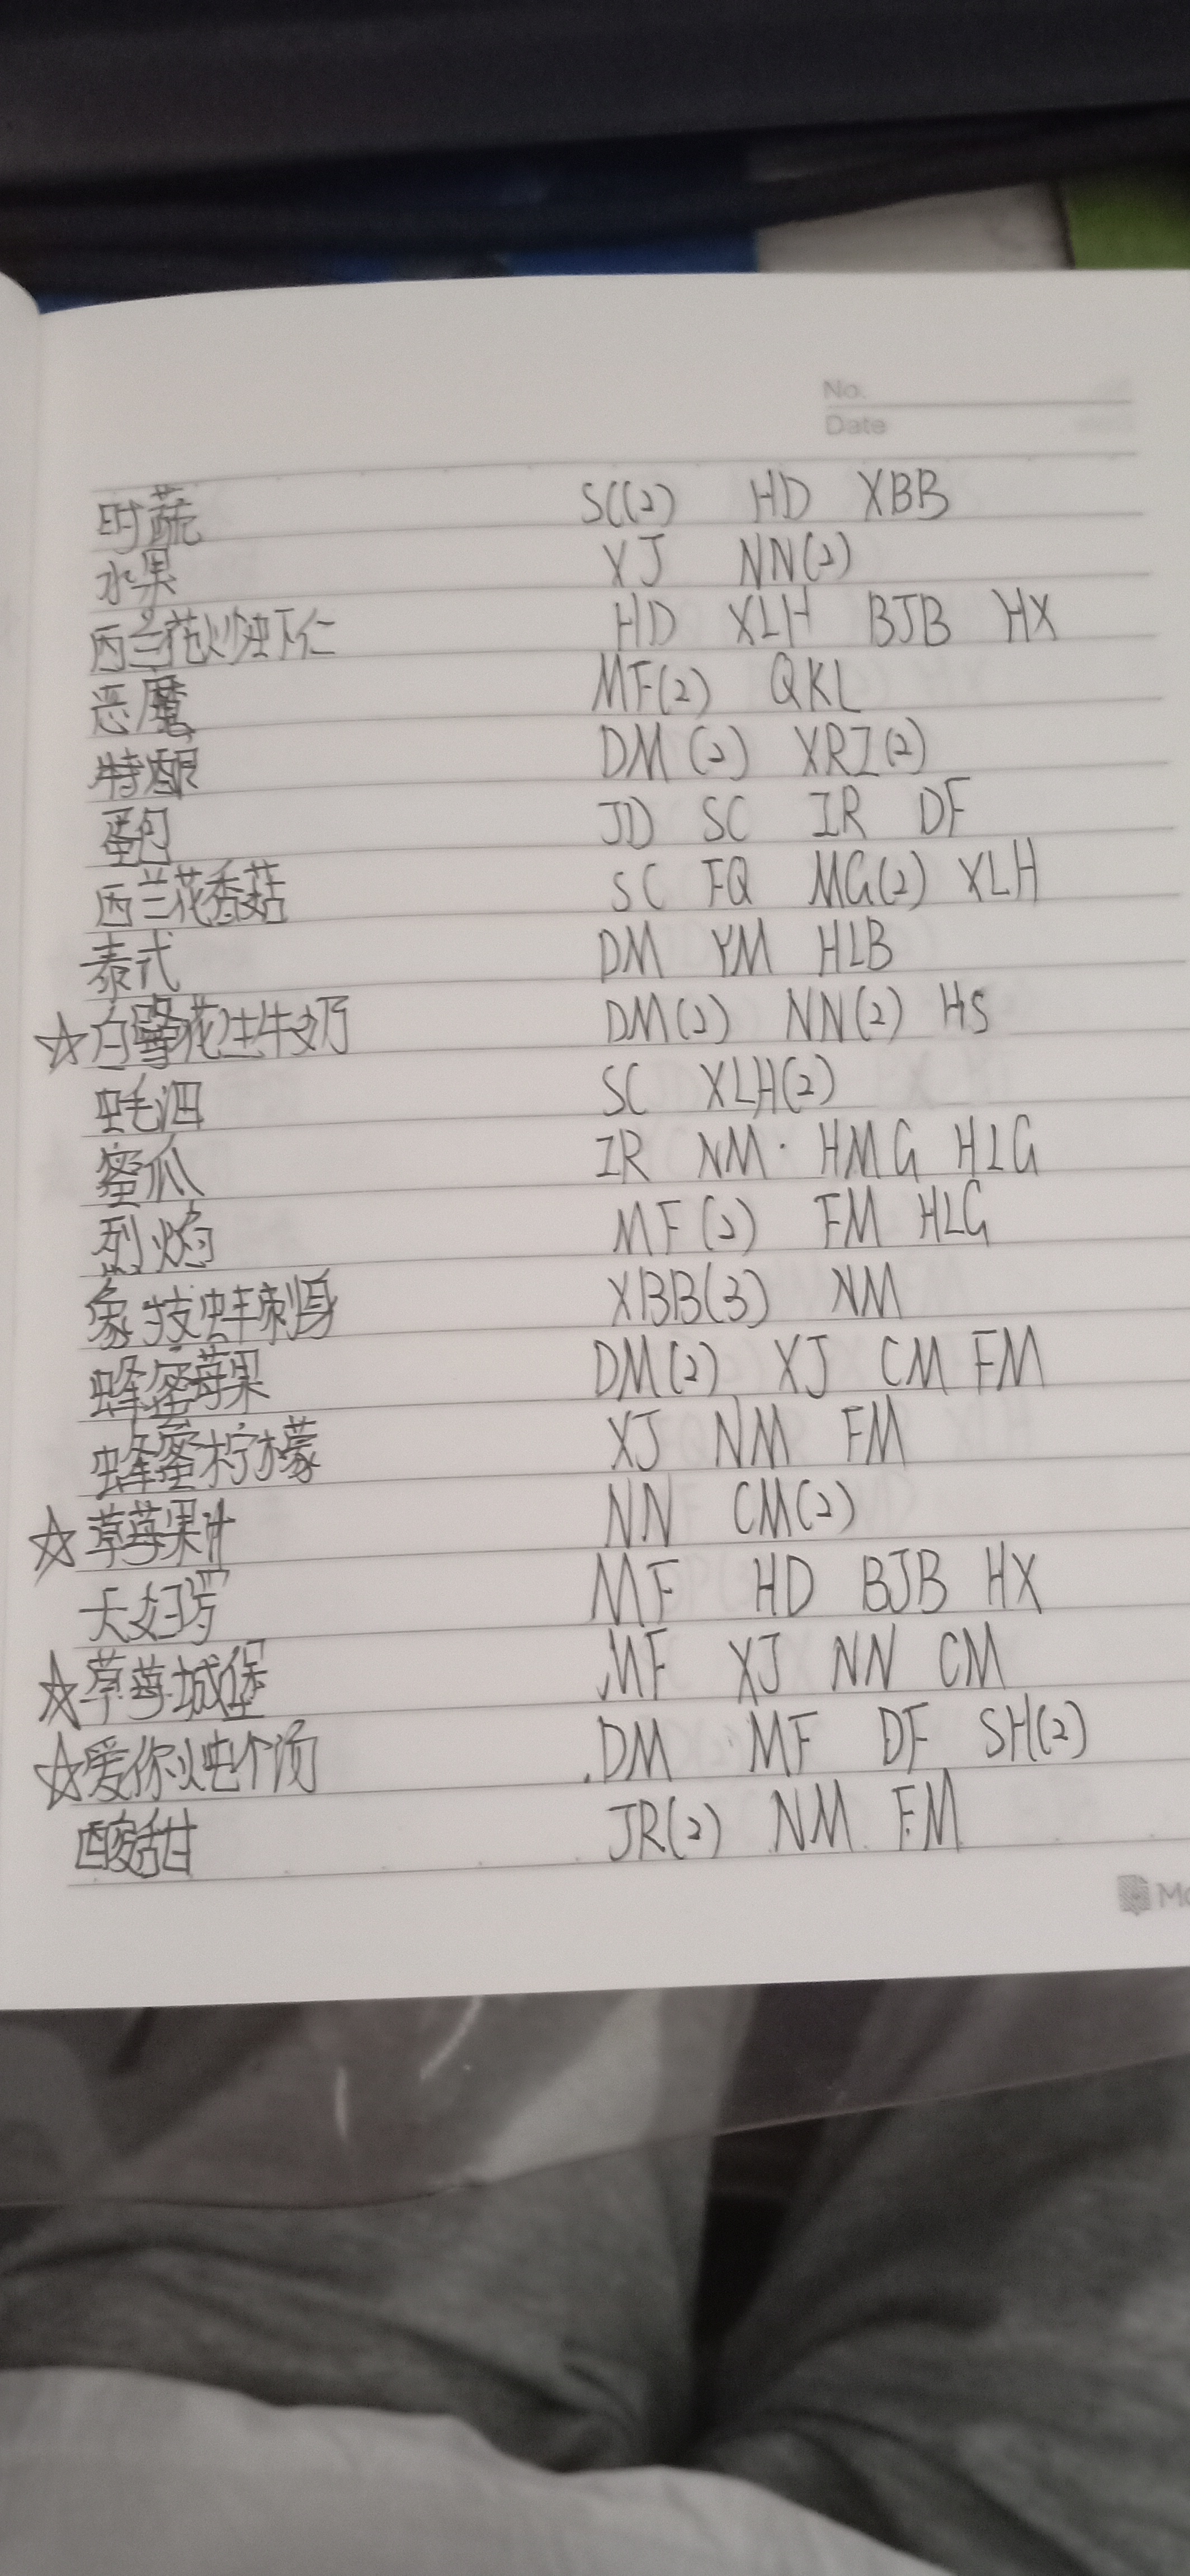 No.
Date
时蔬 SC(2) HD XBB
水果 XJ NN(2)
西兰花炒虾仁 HD XLH BJB HX
恶魔 MF(2) QKL
特酿 DM(2) XRZ(2)
蛋包 JD SC IR DF
西兰花香菇 SC FQ MG(2) XLH
泰式 DM YM HLB
☆白露花生牛奶 DM(2) NN(2) HS
SC XLH(2)
蜜瓜 IR NM HMG HLG
烈焰 MF(2) FM HLG
象拔蚌刺身 XBB(3) NM
蜂蜜莓果 DM(2) XJ CM FM
蜂蜜柠檬 XJ NM FM
☆草莓果汁 NN CM(2)
天妇罗 MF HD BJB HX
☆草莓城堡 MF XJ NN CM
☆爱你炖个汤 DM MF DF SH(2)
酸甜 JR(2) NM FM